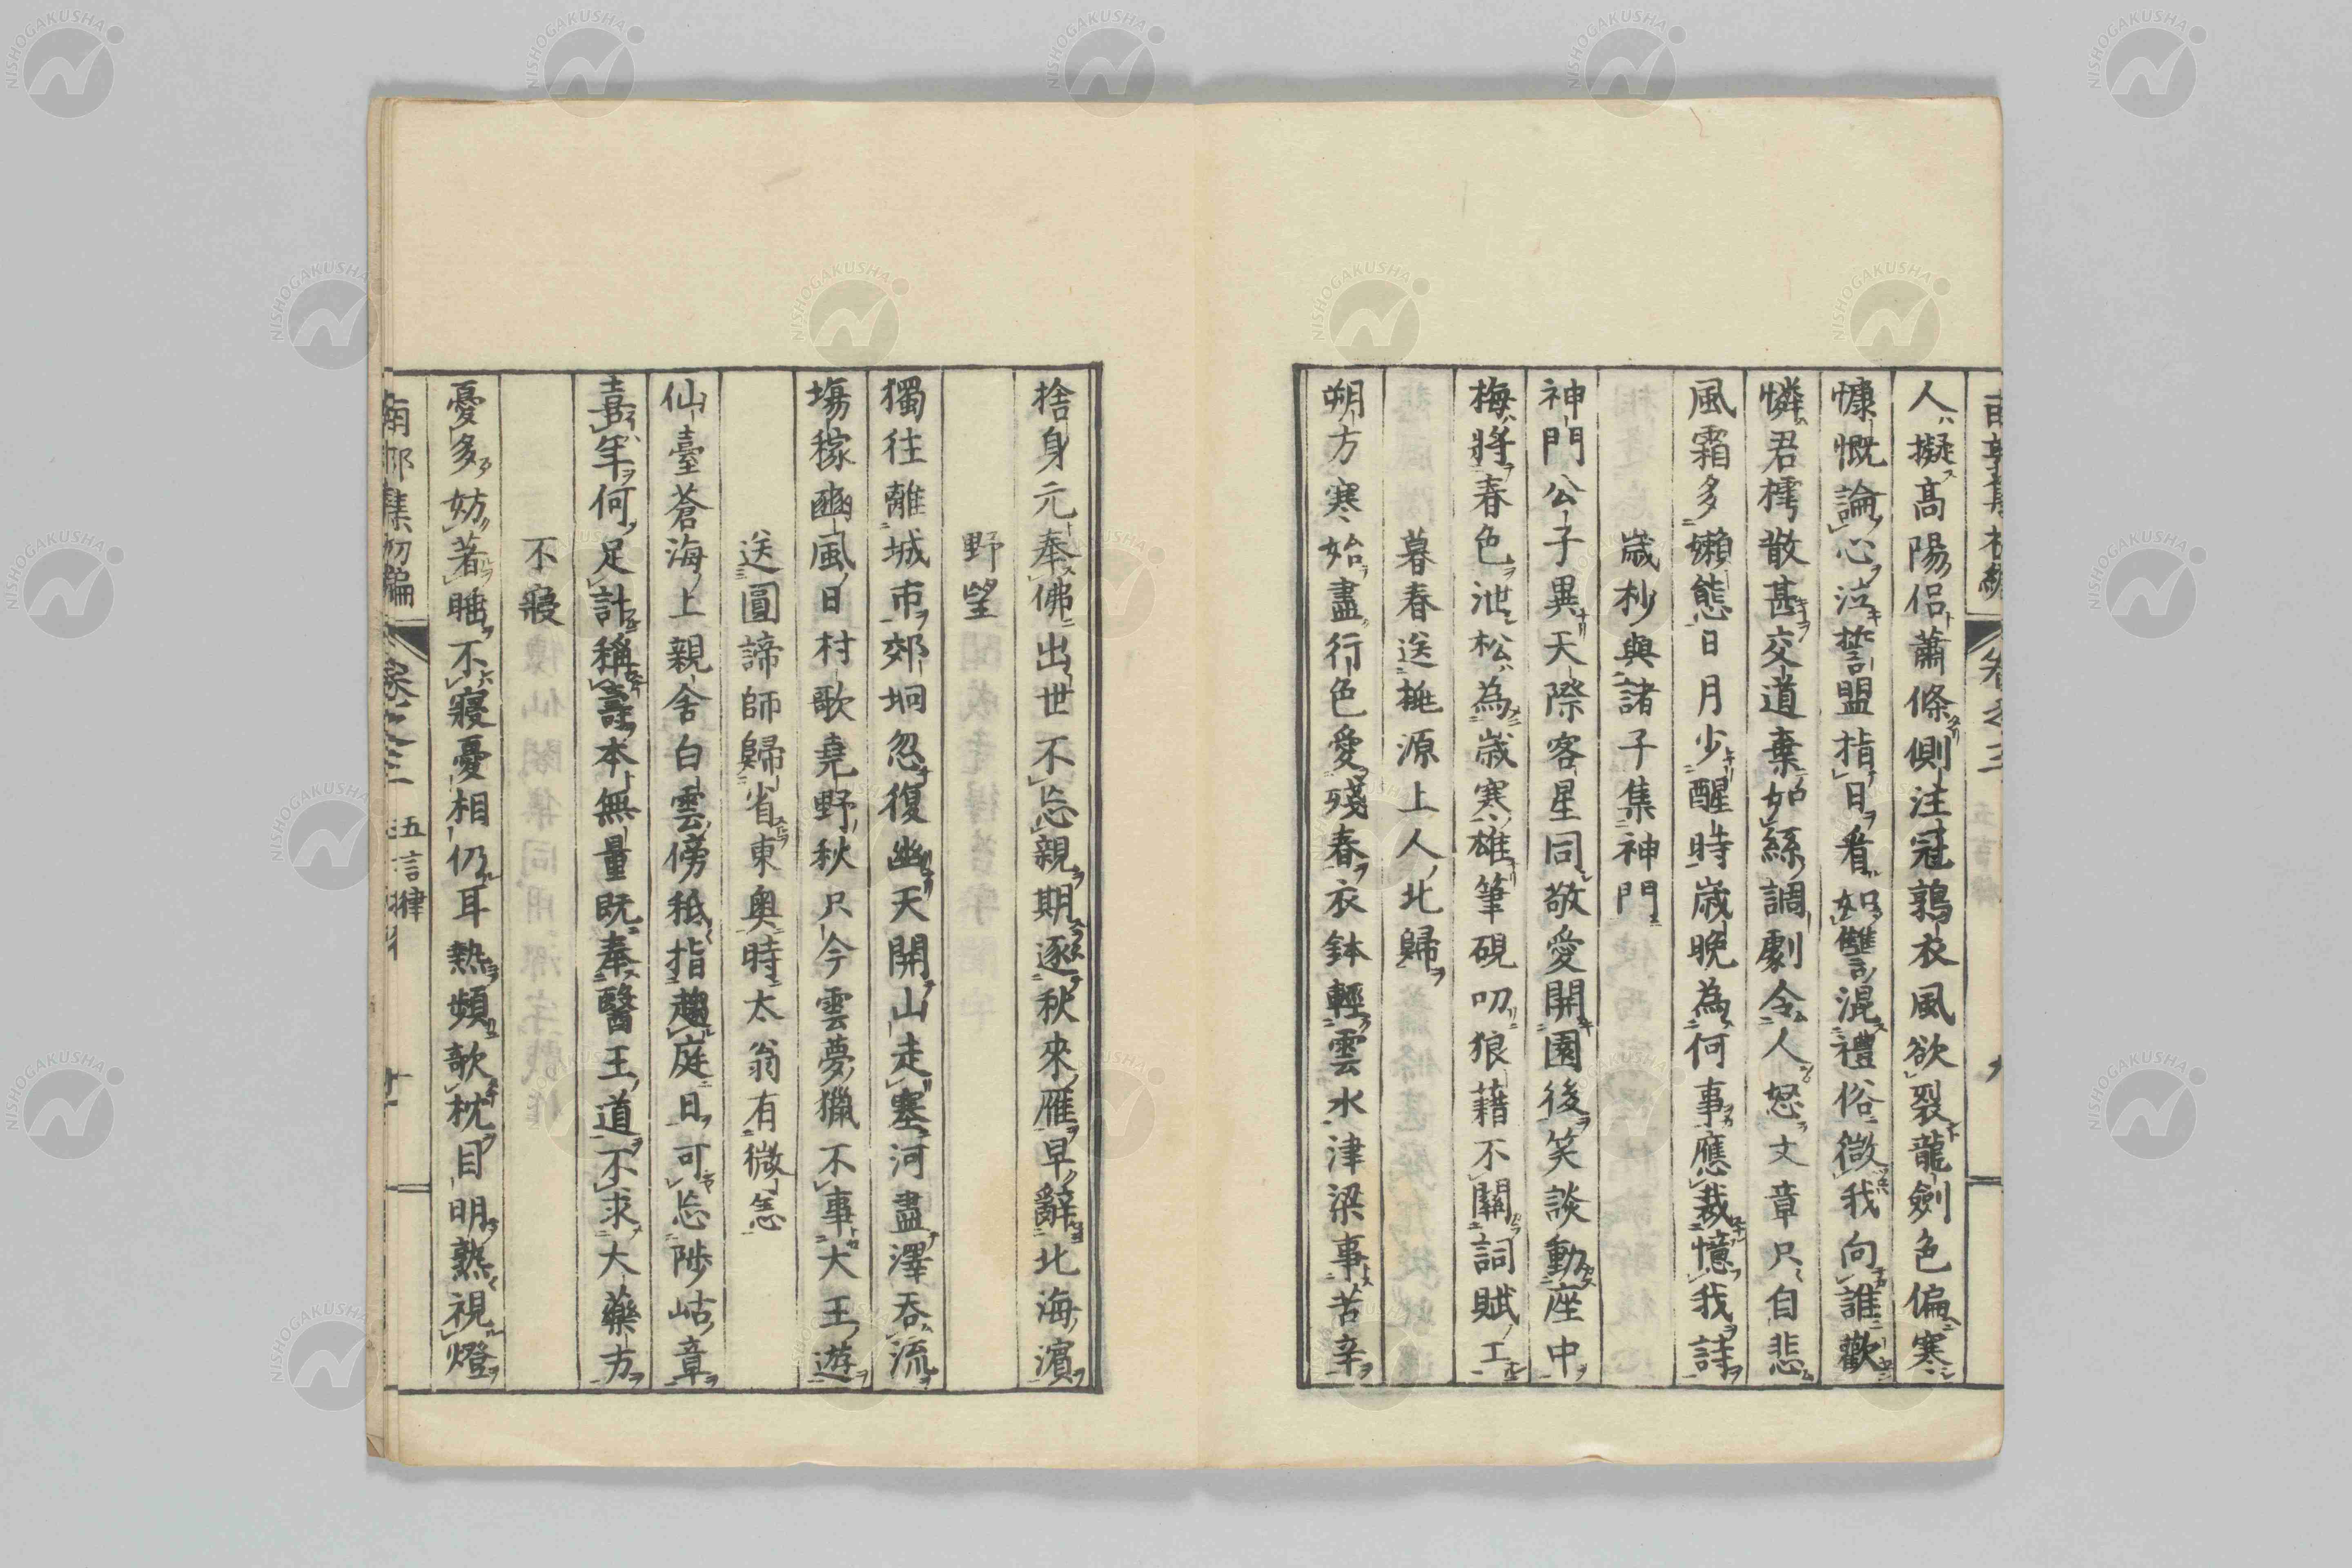 人擬高陽侶蕭條側注冠鶉衣風欲裂龍劍色偏寒
慷慨論心泣誓盟指日看如讎混禮俗微我向誰歡
憐君樗散甚交道棄如絲調劇令人怒文章只自悲
風霜多嬾態日月少醒時歲晚為何事應裁憶我詩
歲杪與諸子集神門
神門公子異天際客星同敬愛開園後笑談動座中
梅將春色池松為歲寒雄筆硯叨狼藉不關詞賦工
暮春送桃源上人北歸
朔方寒始盡行色愛殘春衣鉢輕雲水津梁事苦辛
捨身元奉佛出世不忘親期逐秋來雁早辭北海濱
野望
獨往離城市郊坰忽復幽天開山走塞河盡澤吞流
場稼豳風日村歌堯野秋只今雲夢獵不事大王遊
送圓諦師歸省東奧時太翁有微恙
仙臺蒼海上親舍白雲傍秪指趨庭日可忘陟岵章
喜年何足計稱壽本無量既奉醫王道不求大藥方
不寢
憂多妨著睡不寢憂相仍耳熱頻欹枕目明熟視燈
南郭集初編
卷之三
五言律
NISHOGAKUSHA